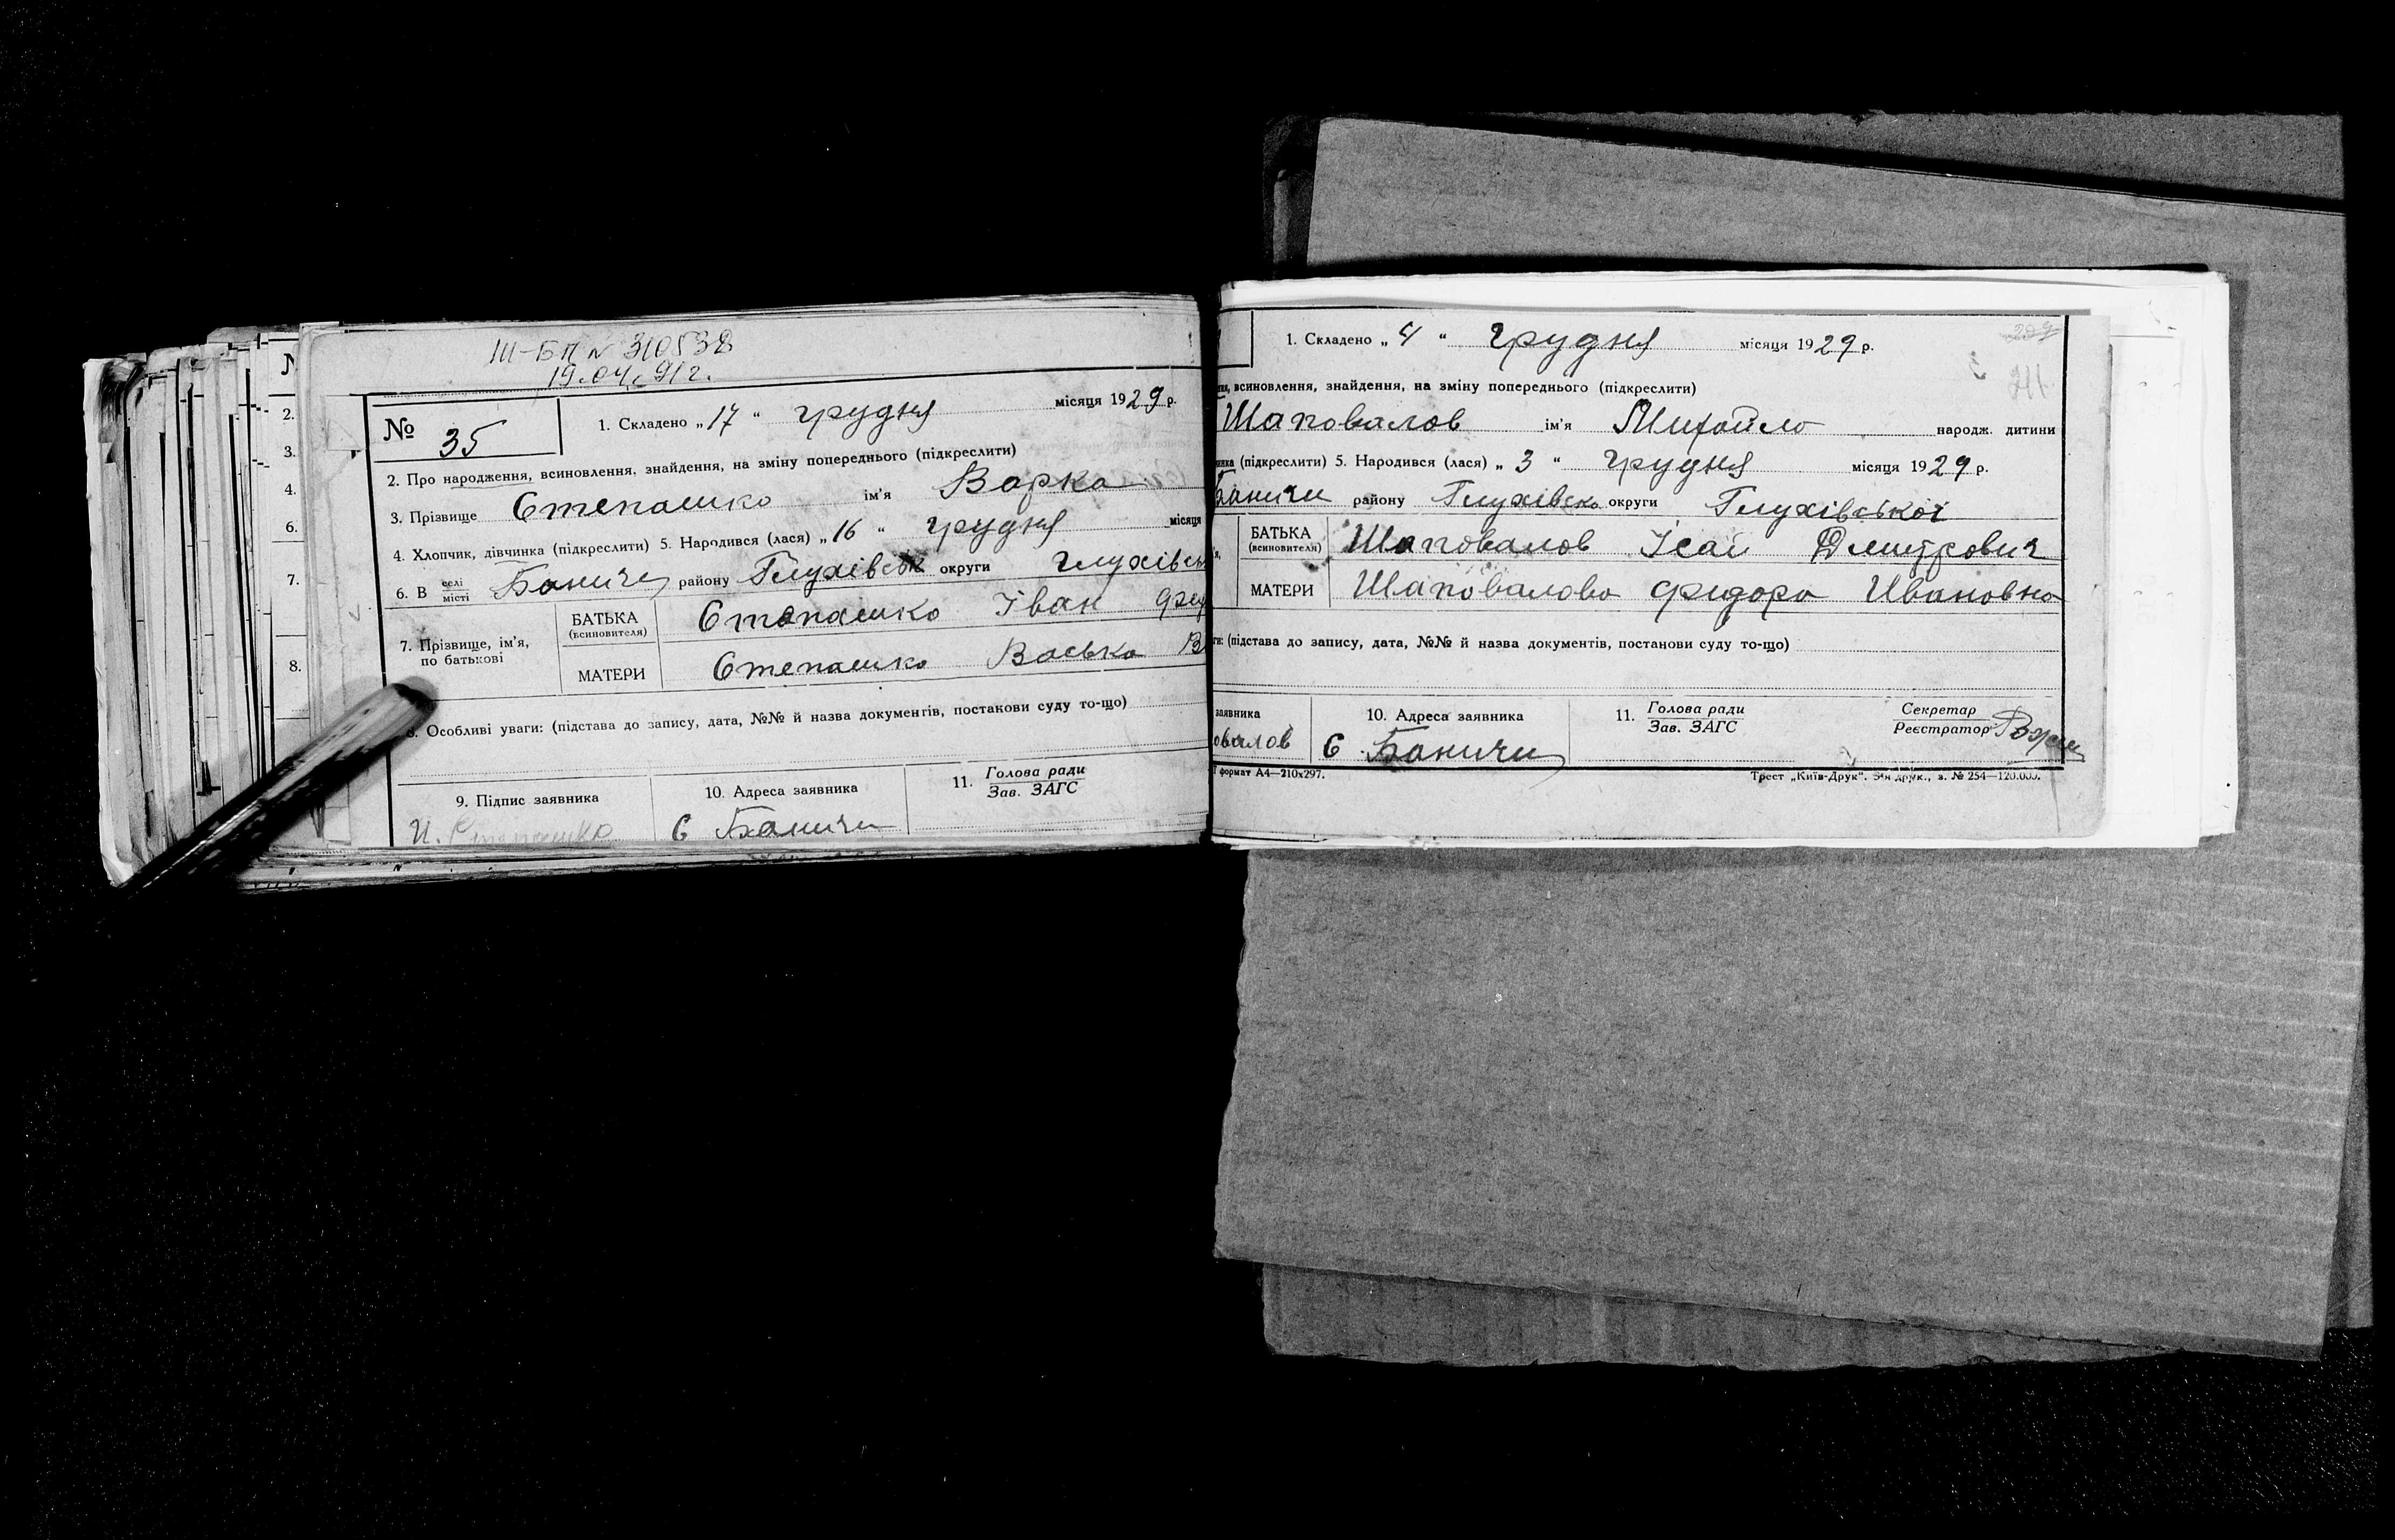 III-БП № 310538
19.04.91г.
№ 35
1. Складено „17“ грудня місяця 1929 р.
2. Про народження, всиновлення, знайдення, на зміну попереднього (підкреслити)
3. Прізвище Степашко ім'я Варка
4. Хлопчик, дівчинка (підкреслити) 5. Народився (лася) „16“ грудня місяця
6. В селі місті Баничи району Глухівськ округи Глухівсь
7. Прізвище, ім'я, по батькові
БАТЬКА (всиновителя) Степашко Іван Фед
МАТЕРИ Степашко Васька В
8. Особливі уваги: (підстава до запису, дата, №№ й назва документів, постанови суду то-що)
9. Підпис заявника 10. Адреса заявника 11. Голова ради Зав. ЗАГС
И. Степашко С Баничи
N
2.
3.
4.
6.
7.
8.
1. Складено „4“ грудня місяця 1929 р.
всиновлення, знайдення, на зміну попереднього (підкреслити)
Шаповалов ім'я Михайло народж. дитини
(підкреслити) 5. Народився (лася) „3“ грудня місяця 1929 р.
Баничи району Глухівсько округи Глухівської
БАТЬКА (всиновителя) Шаповалов Ісаі Дмитрович
МАТЕРИ Шаповалова Фидора Ивановна
(підстава до запису, дата, №№ й назва документів, постанови суду то-що)
заявника 10. Адреса заявника 11. Голова ради Зав. ЗАГС Секретар Реєстратор
овалов С Баничи
формат А4—210х297. Трест „Київ-Друк“. друк., з. № 254—120.000.